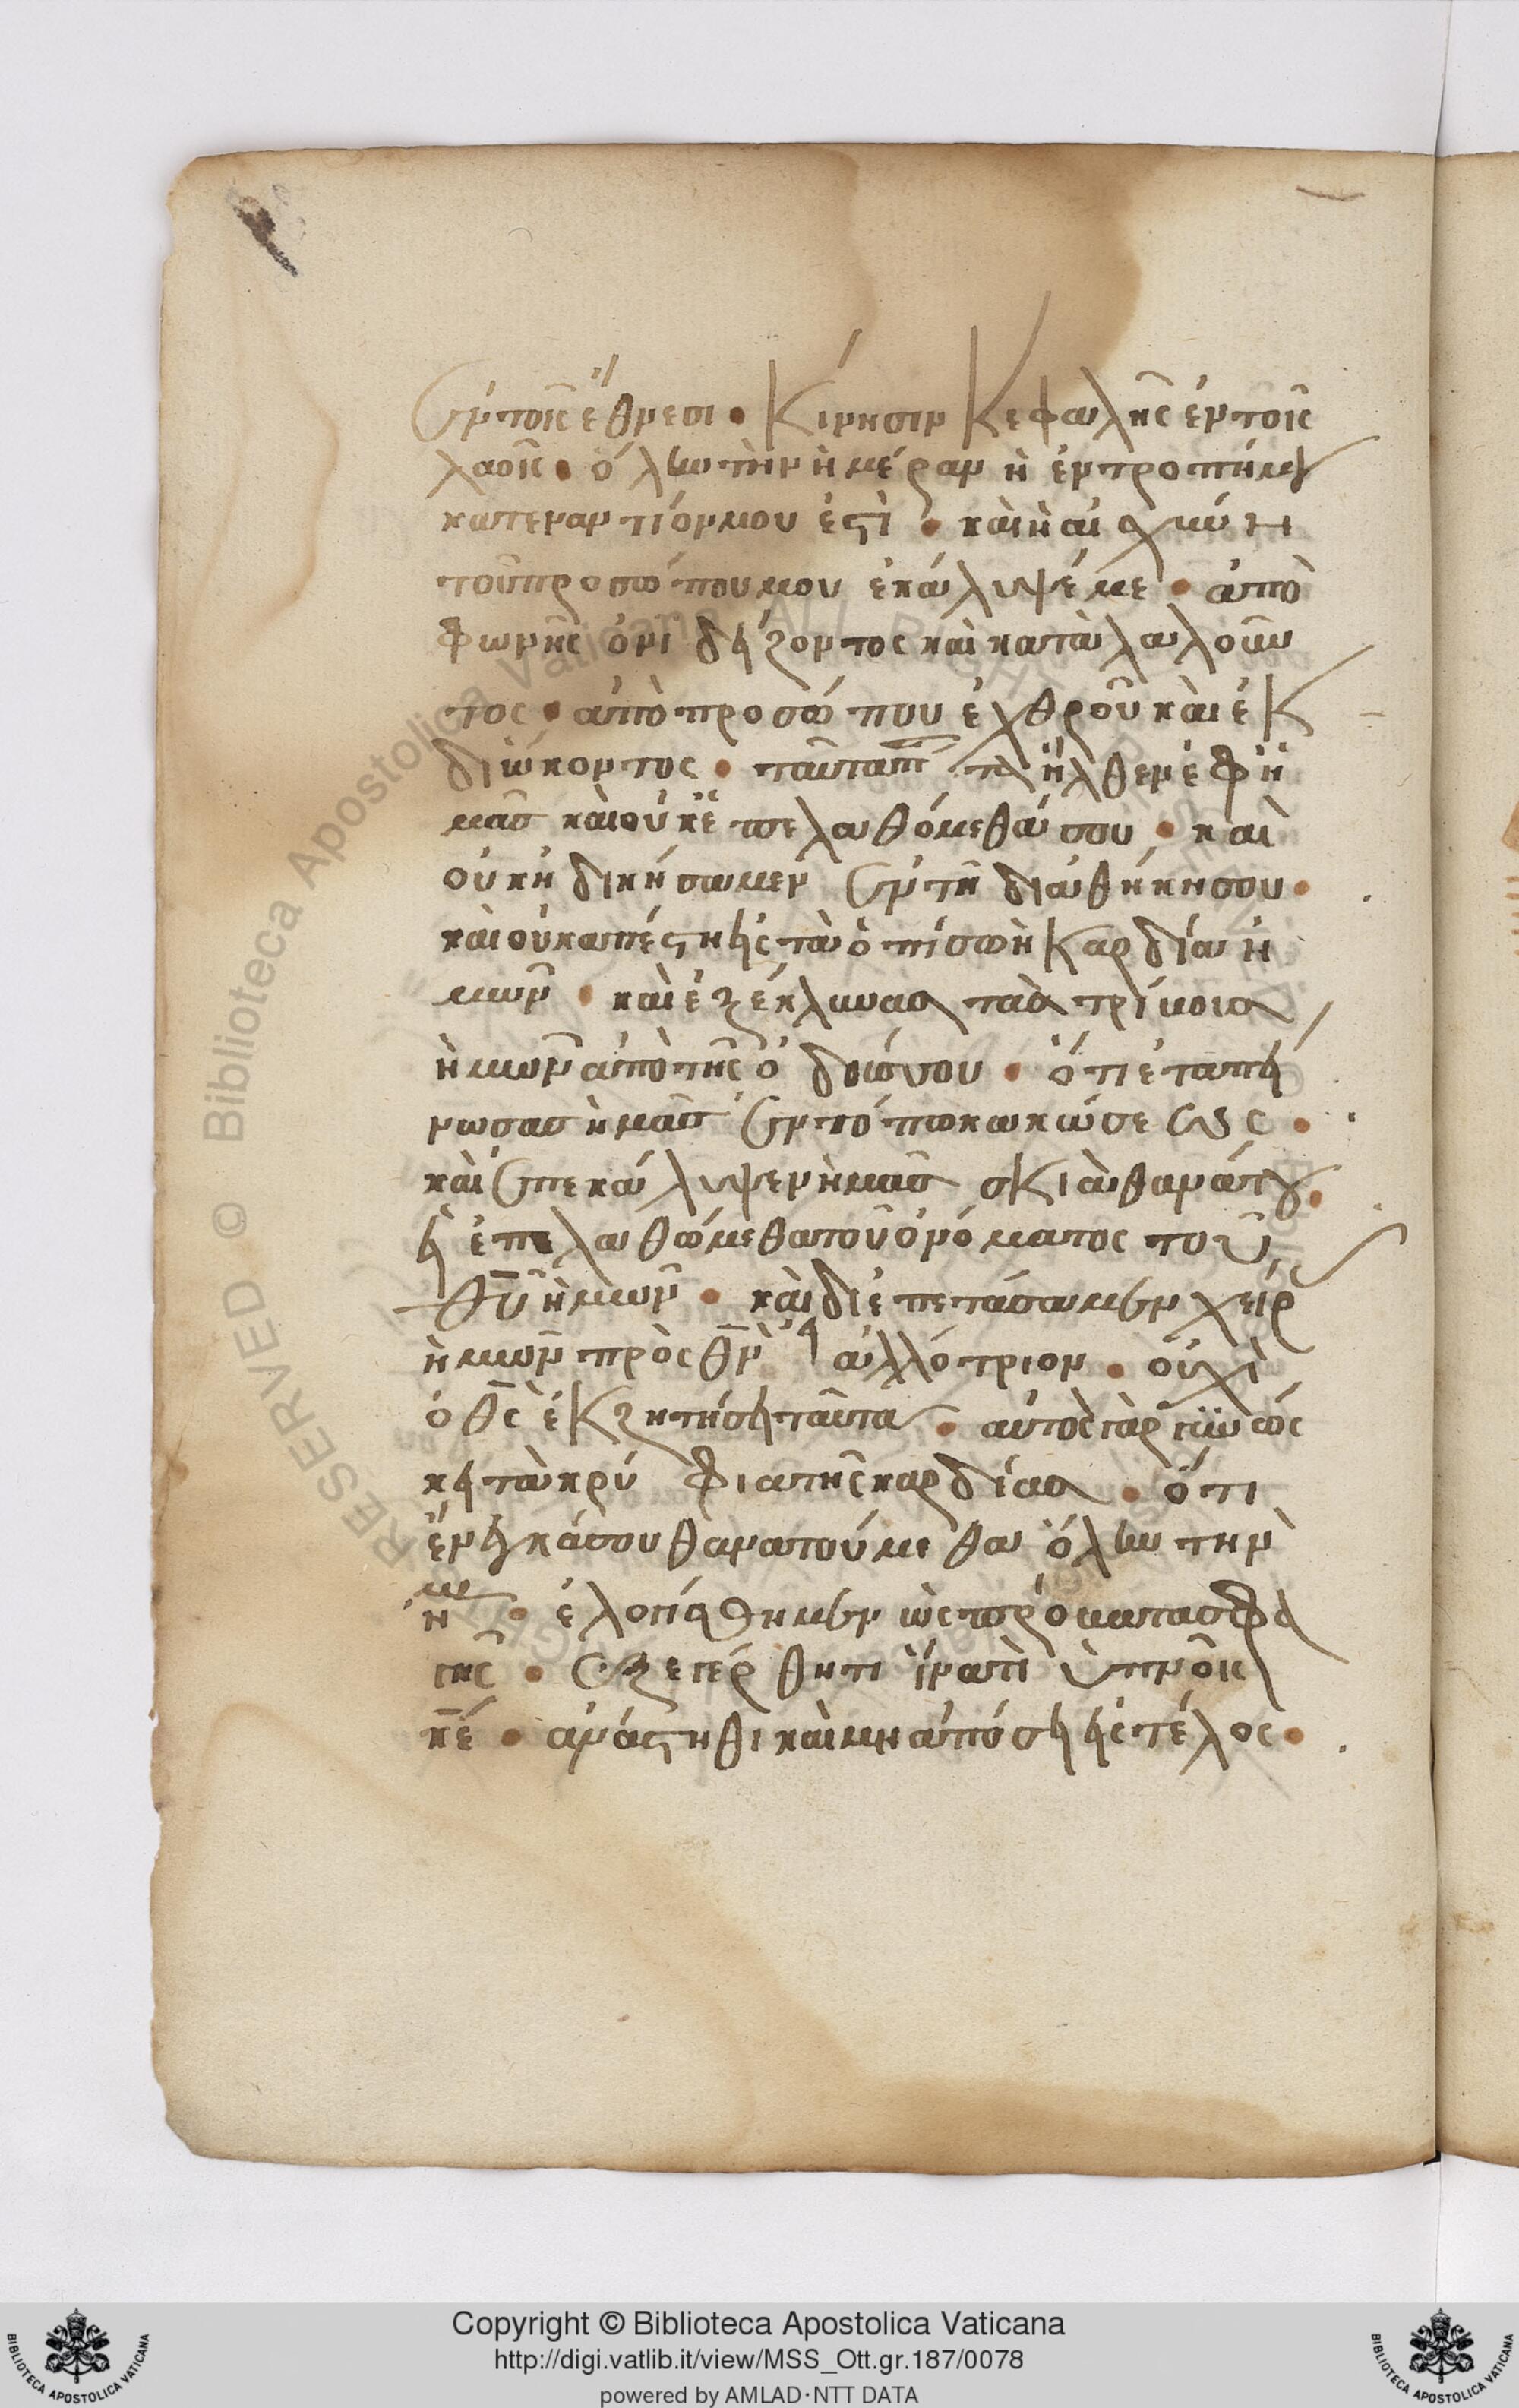 ἐν τοῖς ἔθνεσι · Κίνησιν Κεφαλῆς ἐν τοῖς
λαοῖς · ὅλην τὴν ἡμέραν ἡ ἐντροπή μου
κατεναντίον μου ἐστὶ · καὶ ἡ αἰσχύνη
τοῦ προσώπου μου ἐκάλυψέ με · ἀπὸ
φωνῆς ὀνειδίζοντος καὶ καταλαλοῦν
τος · ἀπὸ προσώπου ἐχθροῦ καὶ ἐκ
διώκοντος · ταῦτα πάντα ἦλθεν ἐφ ἡ
μᾶς καὶ οὐκ ἐπελαθόμεθά σου · καὶ
οὐκ ἠδικήσαμεν ἐν τῇ διαθήκη σου ·
καὶ οὐκ ἀπέστη εἰς τὰ ὀπίσω ἡ καρδία ἡ
μῶν · καὶ ἐξέκλινας τὰς τρίβους
ἡμῶν ἀπὸ τῆς ὁδοῦ σου · ὅτι ἐταπεί
νωσας ἡμᾶς ἐν τόπω κακώσεως ·
καὶ ἐπεκάλυψεν ἡμᾶς σκιὰ θανάτου ·
εἰ ἐπελαθώμεθα τοῦ ὀνόματος τοῦ
θῦ ἡμῶν · καὶ διεπετάσαμεν χεῖρ
ἡμῶν πρὸς θν ἀλλότριον · οὐχὶ
ὁ θς ἐκζητήσει ταῦτα · αὐτὸς γὰρ γινώς
κει τὰ κρύφια τῆς καρδίας · ὅτι
ἕνεκά σου θανατούμεθα ὅλην τὴν
ἡμ · ἐλογίσθημεν ὡς πρόβατα σφα
γῆς · ἐξεγέρθητι ἱνατὶ ὑπνοῖς
κέ · ἀνάστηθι καὶ μὴ ἀπώσῃ εἰς τέλος ·
Copyright © Biblioteca Apostolica Vaticana
http://digi.vatlib.it/view/MSS_Ott.gr.187/0078
powered by AMLAD·NTT DATA